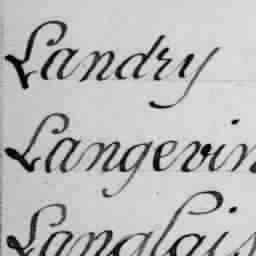 Landry
Langevin
Langlais